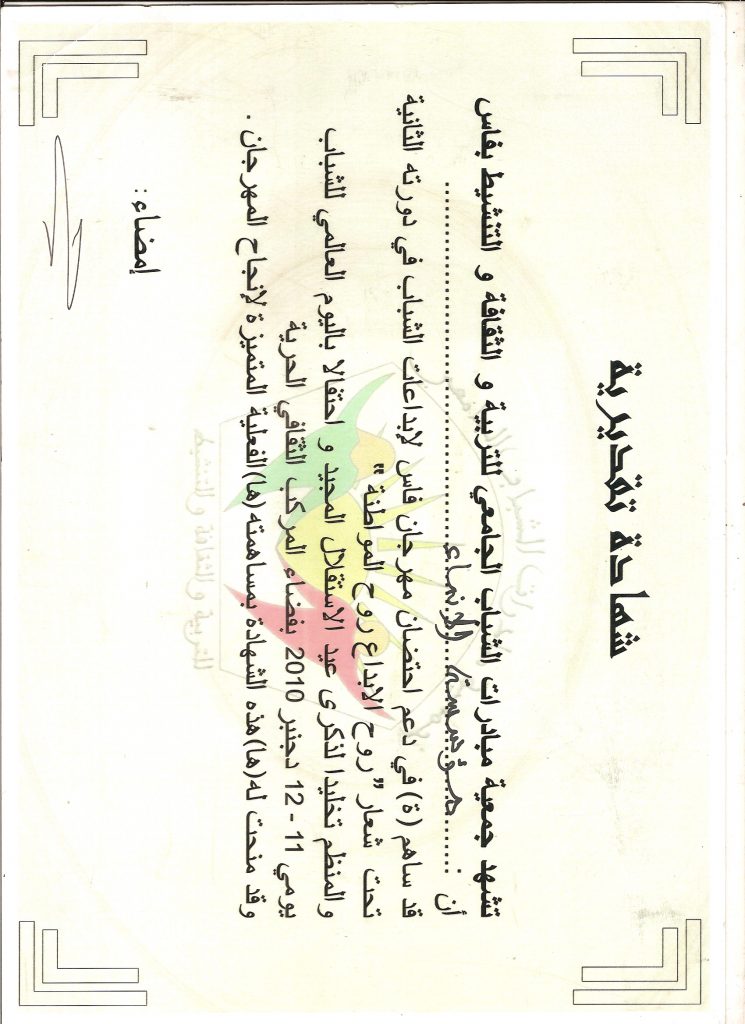 شهادة تقديرية
تشهد جمعية مبادرات الشباب الجامعي للتربية و الثقافة و التنشيط بفاس
أن : ........ مؤسسة الإنماء ........
قد ساهم (ة) في دعم احتضان مهرجان فاس لإبداعات الشباب في دورته الثانية
تحت شعار "روح الابداع روح المواطنة"
و المنظم تخليدا لذكرى عيد الاستقلال المجيد و احتفالا باليوم العالمي للشباب
يومي 11 - 12 دجنبر 2010 بفضاء المركب الثقافي الحرية
وقد منحت له(ها)هذه الشهادة بمساهمته (ها)الفعلية المتميزة لإنجاح المهرجان .
إمضاء :
للتربية و الثقافة و التنشيط